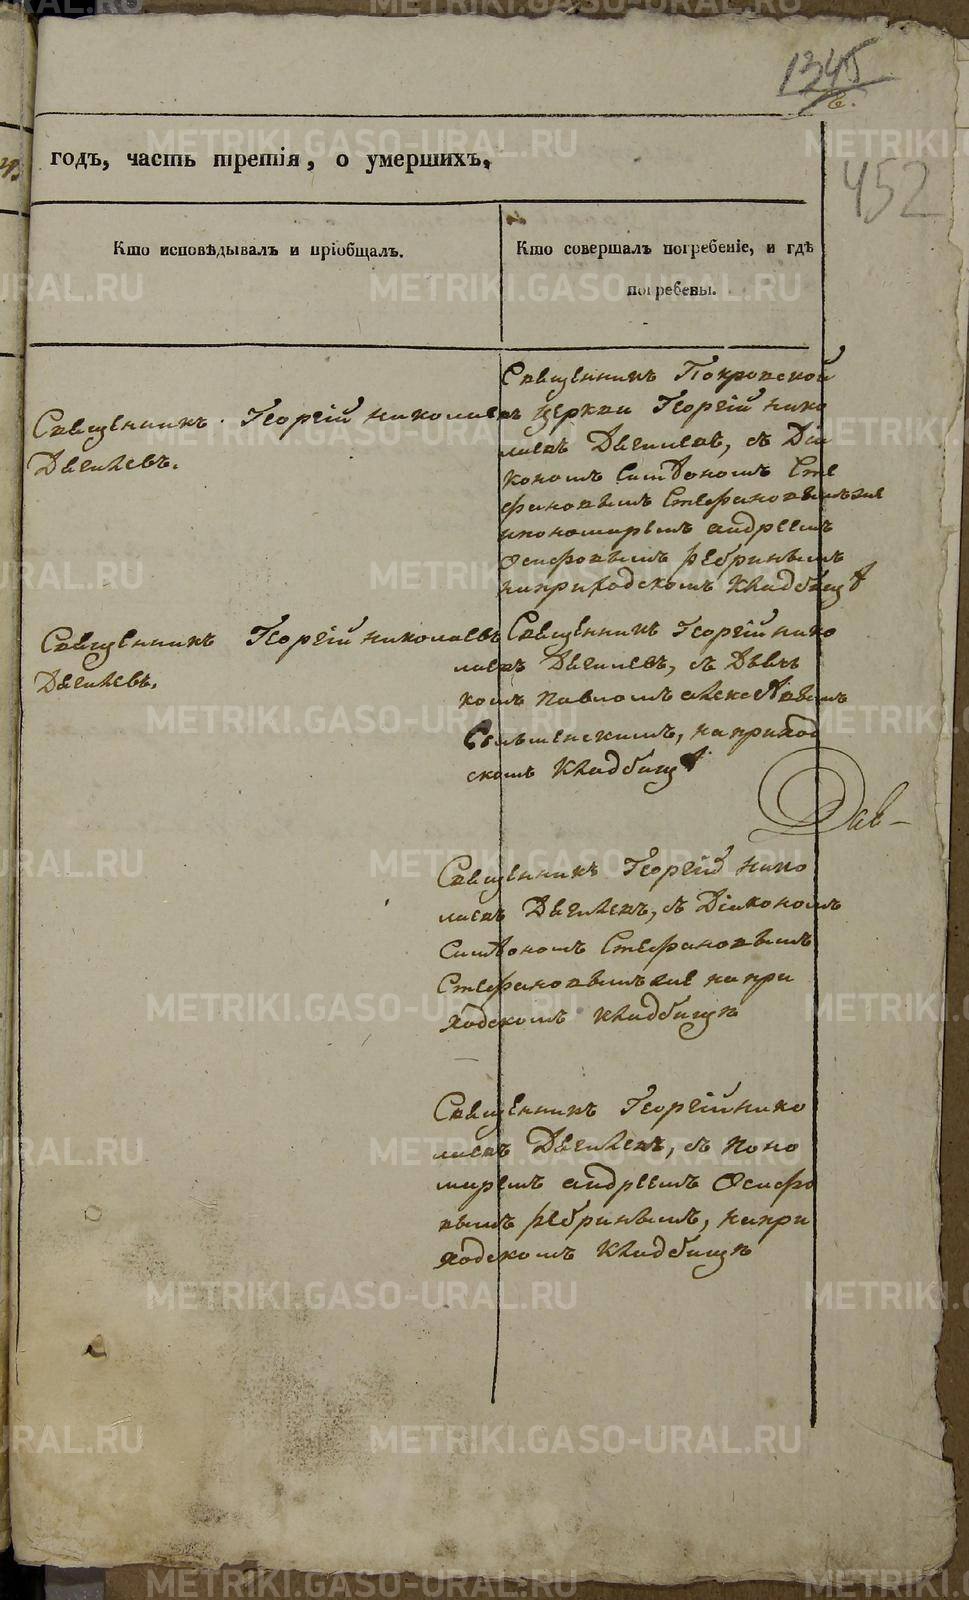 1345
452
годъ, часть третія, о умершихъ,
Кто исповѣдывалъ и пріобщалъ.
Кто совершалъ погребеніе, и гдѣ
погребены.
Священникъ Георгій Николаевъ
Дягилевъ.
Священникъ Покровской
церкви Георгій Нико
лаевъ Дягилевъ, съ Діа
кономъ Симѣономъ Сте
фановымъ Стефановымъ же
и пономаремъ Андреемъ
Осиповымъ Ребринымъ
на приходскомъ кладбищѣ
Священникъ Георгій Николаевъ
Дягилевъ.
Священникъ Георгій Нико
лаевъ Дягилевъ, съ Дьяч
комъ Павломъ Алексѣевымъ
на приход
скомъ кладбищѣ
Дав-
Священникъ Георгій Нико
лаевъ Дягилевъ, съ Діакономъ
Симѣономъ Стефановымъ
Стефановымъ же на при
ходскомъ кладбищѣ
Священникъ Георгій Нико
лаевъ Дягилевъ, съ поно
маремъ Андреемъ Осипо
вымъ Ребринымъ, на при
ходскомъ кладбищѣ
METRIKI.GASO-URAL.RU